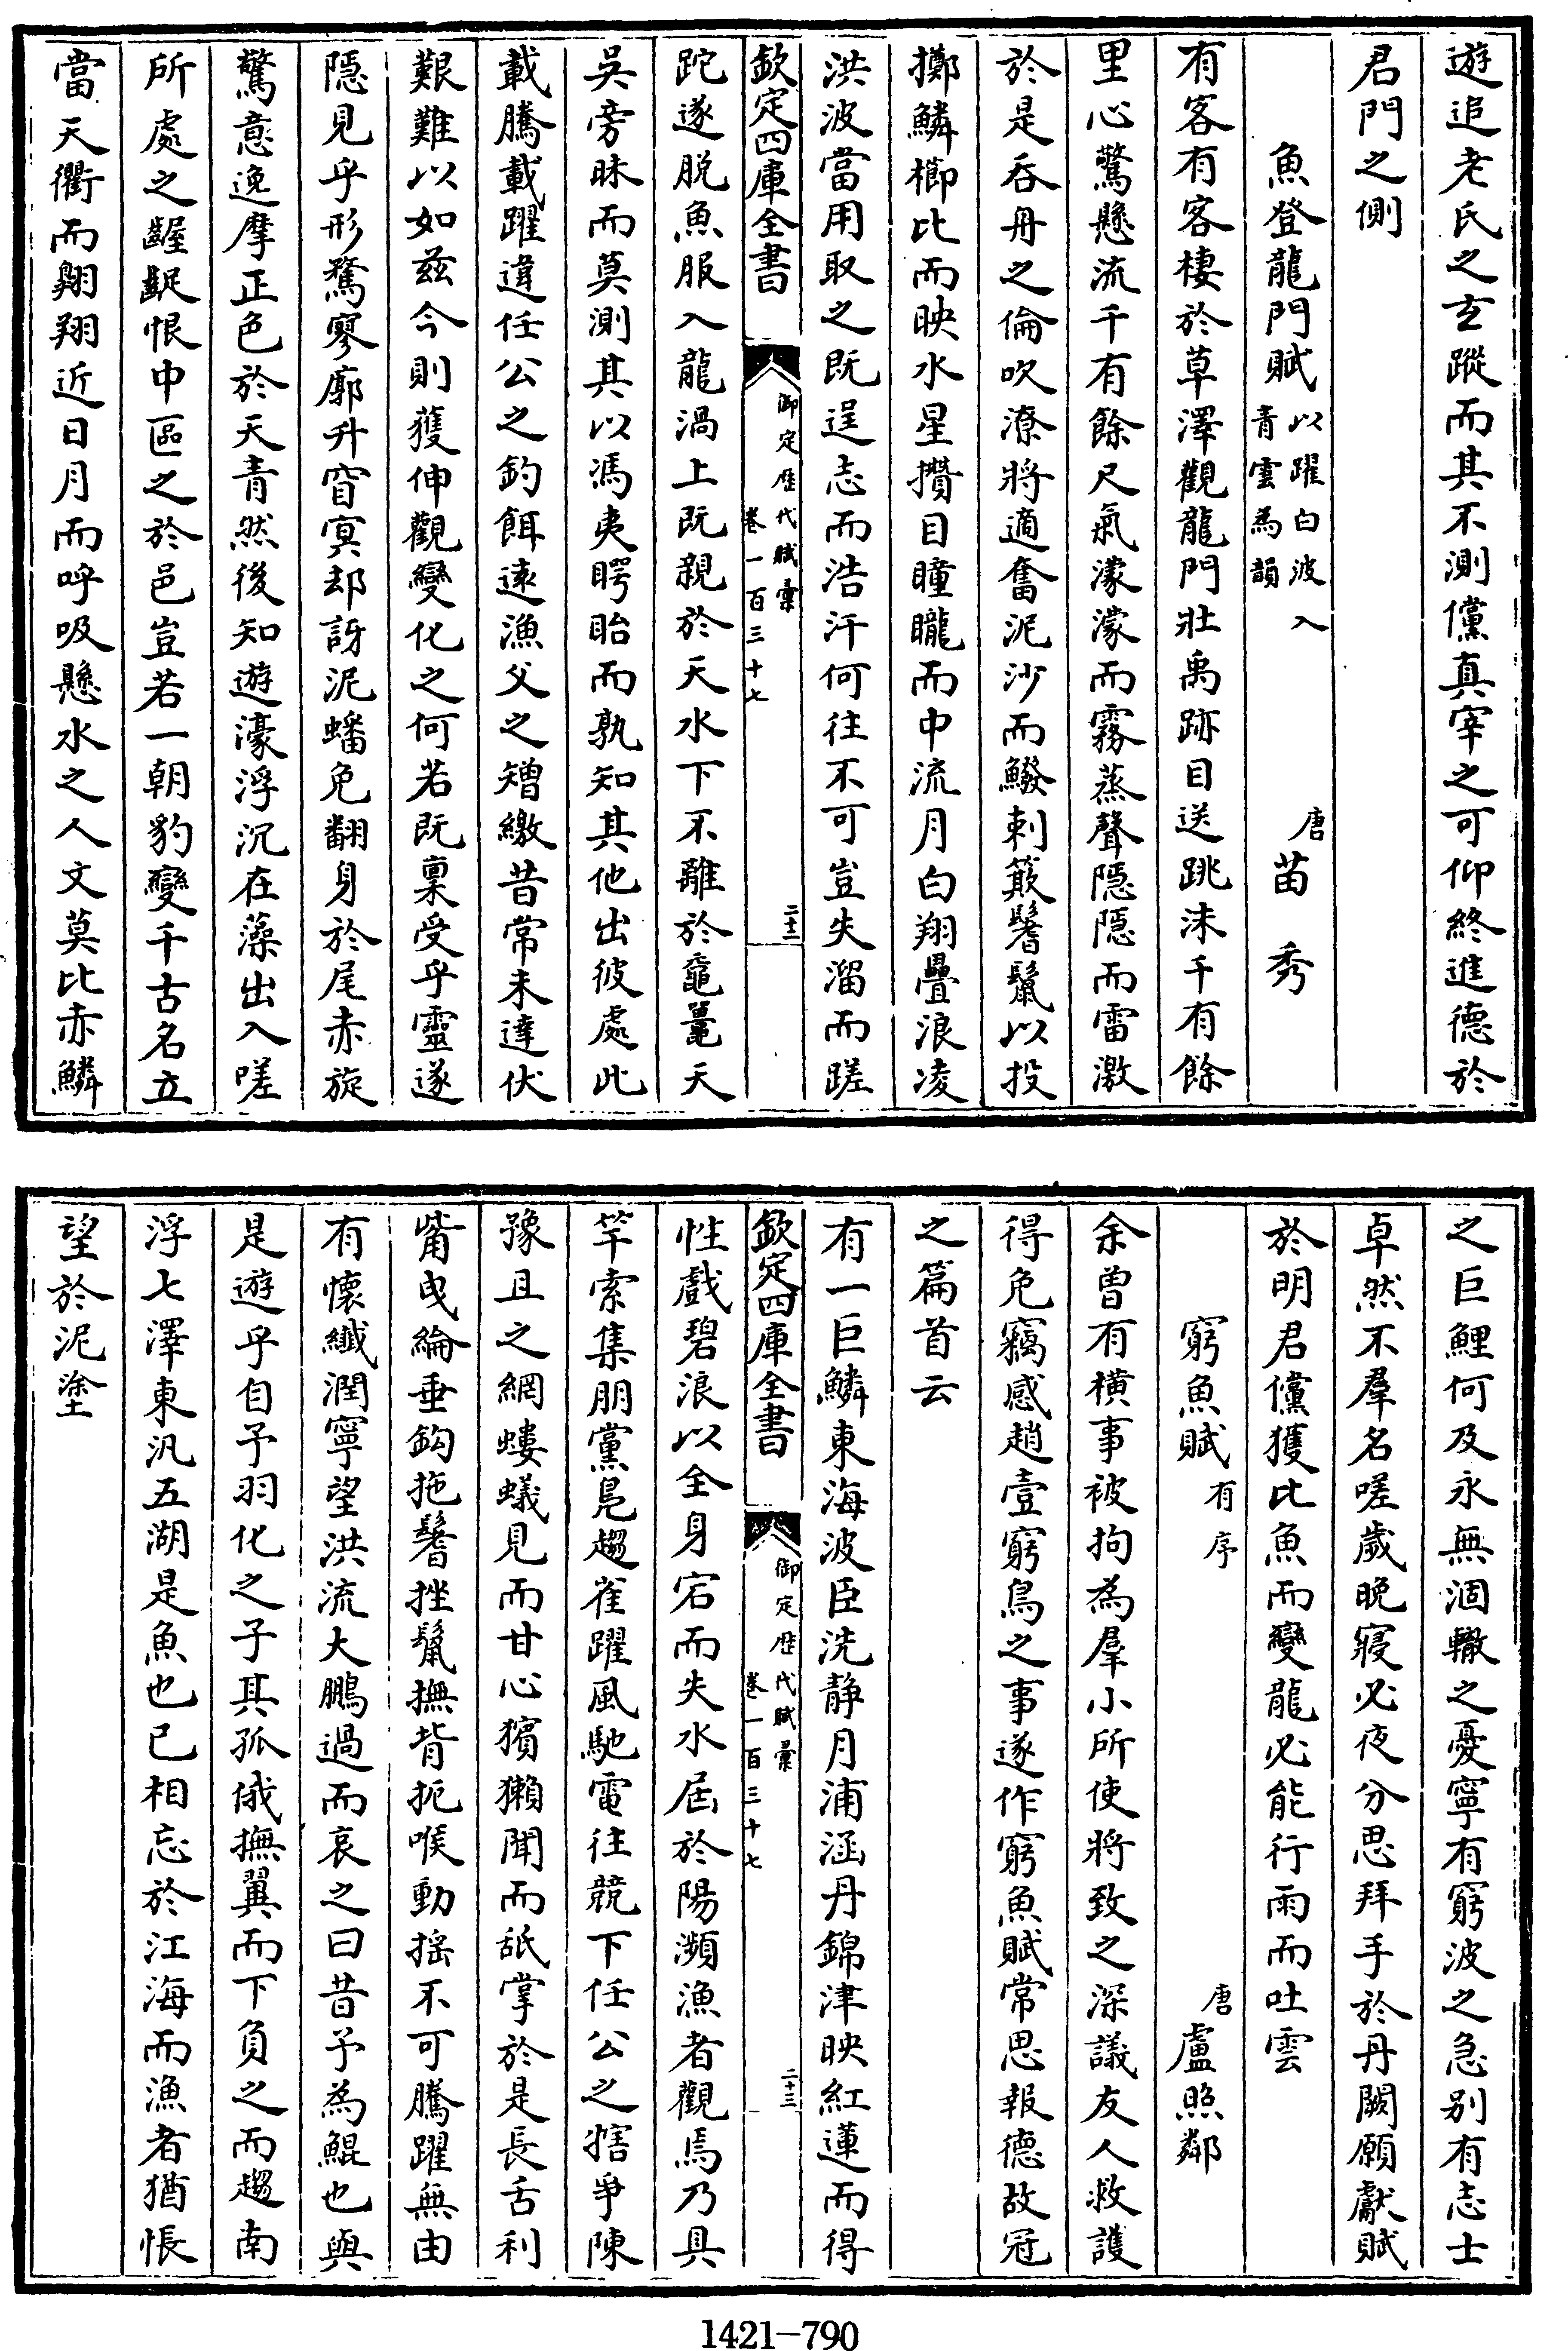 遊追老氏之玄蹤而其不測儻真宰之可仰終進德於
君門之側
魚登龍門賦以躍白波入青雲為韻 唐苗秀
有客有客棲於草澤觀龍門壯禹跡目送跳沫千有餘
里心驚懸流千有餘尺氣濛濛而霧蒸聲隱隱而雷激
於是吞舟之倫吹潦將適奮泥沙而鱍刺簸鬐鬣以投
擲鱗櫛比而映水星攢目瞳矓而中流月白翔疊浪凌
洪波當用取之既逞志而浩汗何往不可豈失溜而蹉
欽定四庫全書
御定歷代賦彙
卷一百三十七
二十二
跎遂脱魚服入龍渦上既親於天水下不離於黿鼉天
吳旁昧而莫測其以馮夷睜眙而孰知其他出彼處此
載騰載躍違任公之釣餌遠漁父之矰繳昔常未達伏
艱難以如茲今則獲伸觀變化之何若既稟受乎靈遂
隱見乎形驚寥廓升窅冥却訝泥蟠免翻身於尾赤旋
驚意逸摩正色於天青然後知遊濠浮沉在藻出入嗟
所處之齷齪恨中區之於邑豈若一朝豹變千古名立
當天衢而翺翔近日月而呼吸懸水之人文莫比赤鱗
之巨鯉何及永無涸轍之憂寧有窮波之急别有志士
卓然不羣名嗟歲晚寢必夜分思拜手於丹闕願獻賦
於明君儻獲比魚而變龍必能行雨而吐雲
窮魚賦有序 唐盧照鄰
余曾有橫事被拘為羣小所使將致之深議友人救護
得免竊感趙壹窮鳥之事遂作窮魚賦常思報德故冠
之篇首云
有一巨鱗東海波臣洗静月浦涵丹錦津映紅蓮而得
欽定四庫全書
御定歷代賦彙
卷一百三十七
二十三
性戲碧浪以全身宕而失水屆於陽瀕漁者觀焉乃具
竿索集朋黨鳧趨雀躍風馳電往競下任公之犗爭陳
豫且之網螻蟻見而甘心獱獺聞而舐掌於是長舌利
觜曳綸垂鈎拖鬐挫鬣撫背扼喉動摇不可騰躍無由
有懷纖潤寧望洪流大鵬過而哀之曰昔予為鯤也與
是遊乎自予羽化之子其孤俄撫翼而下負之而趨南
浮七澤東汎五湖是魚也已相忘於江海而漁者猶悵
望於泥塗
1421-790